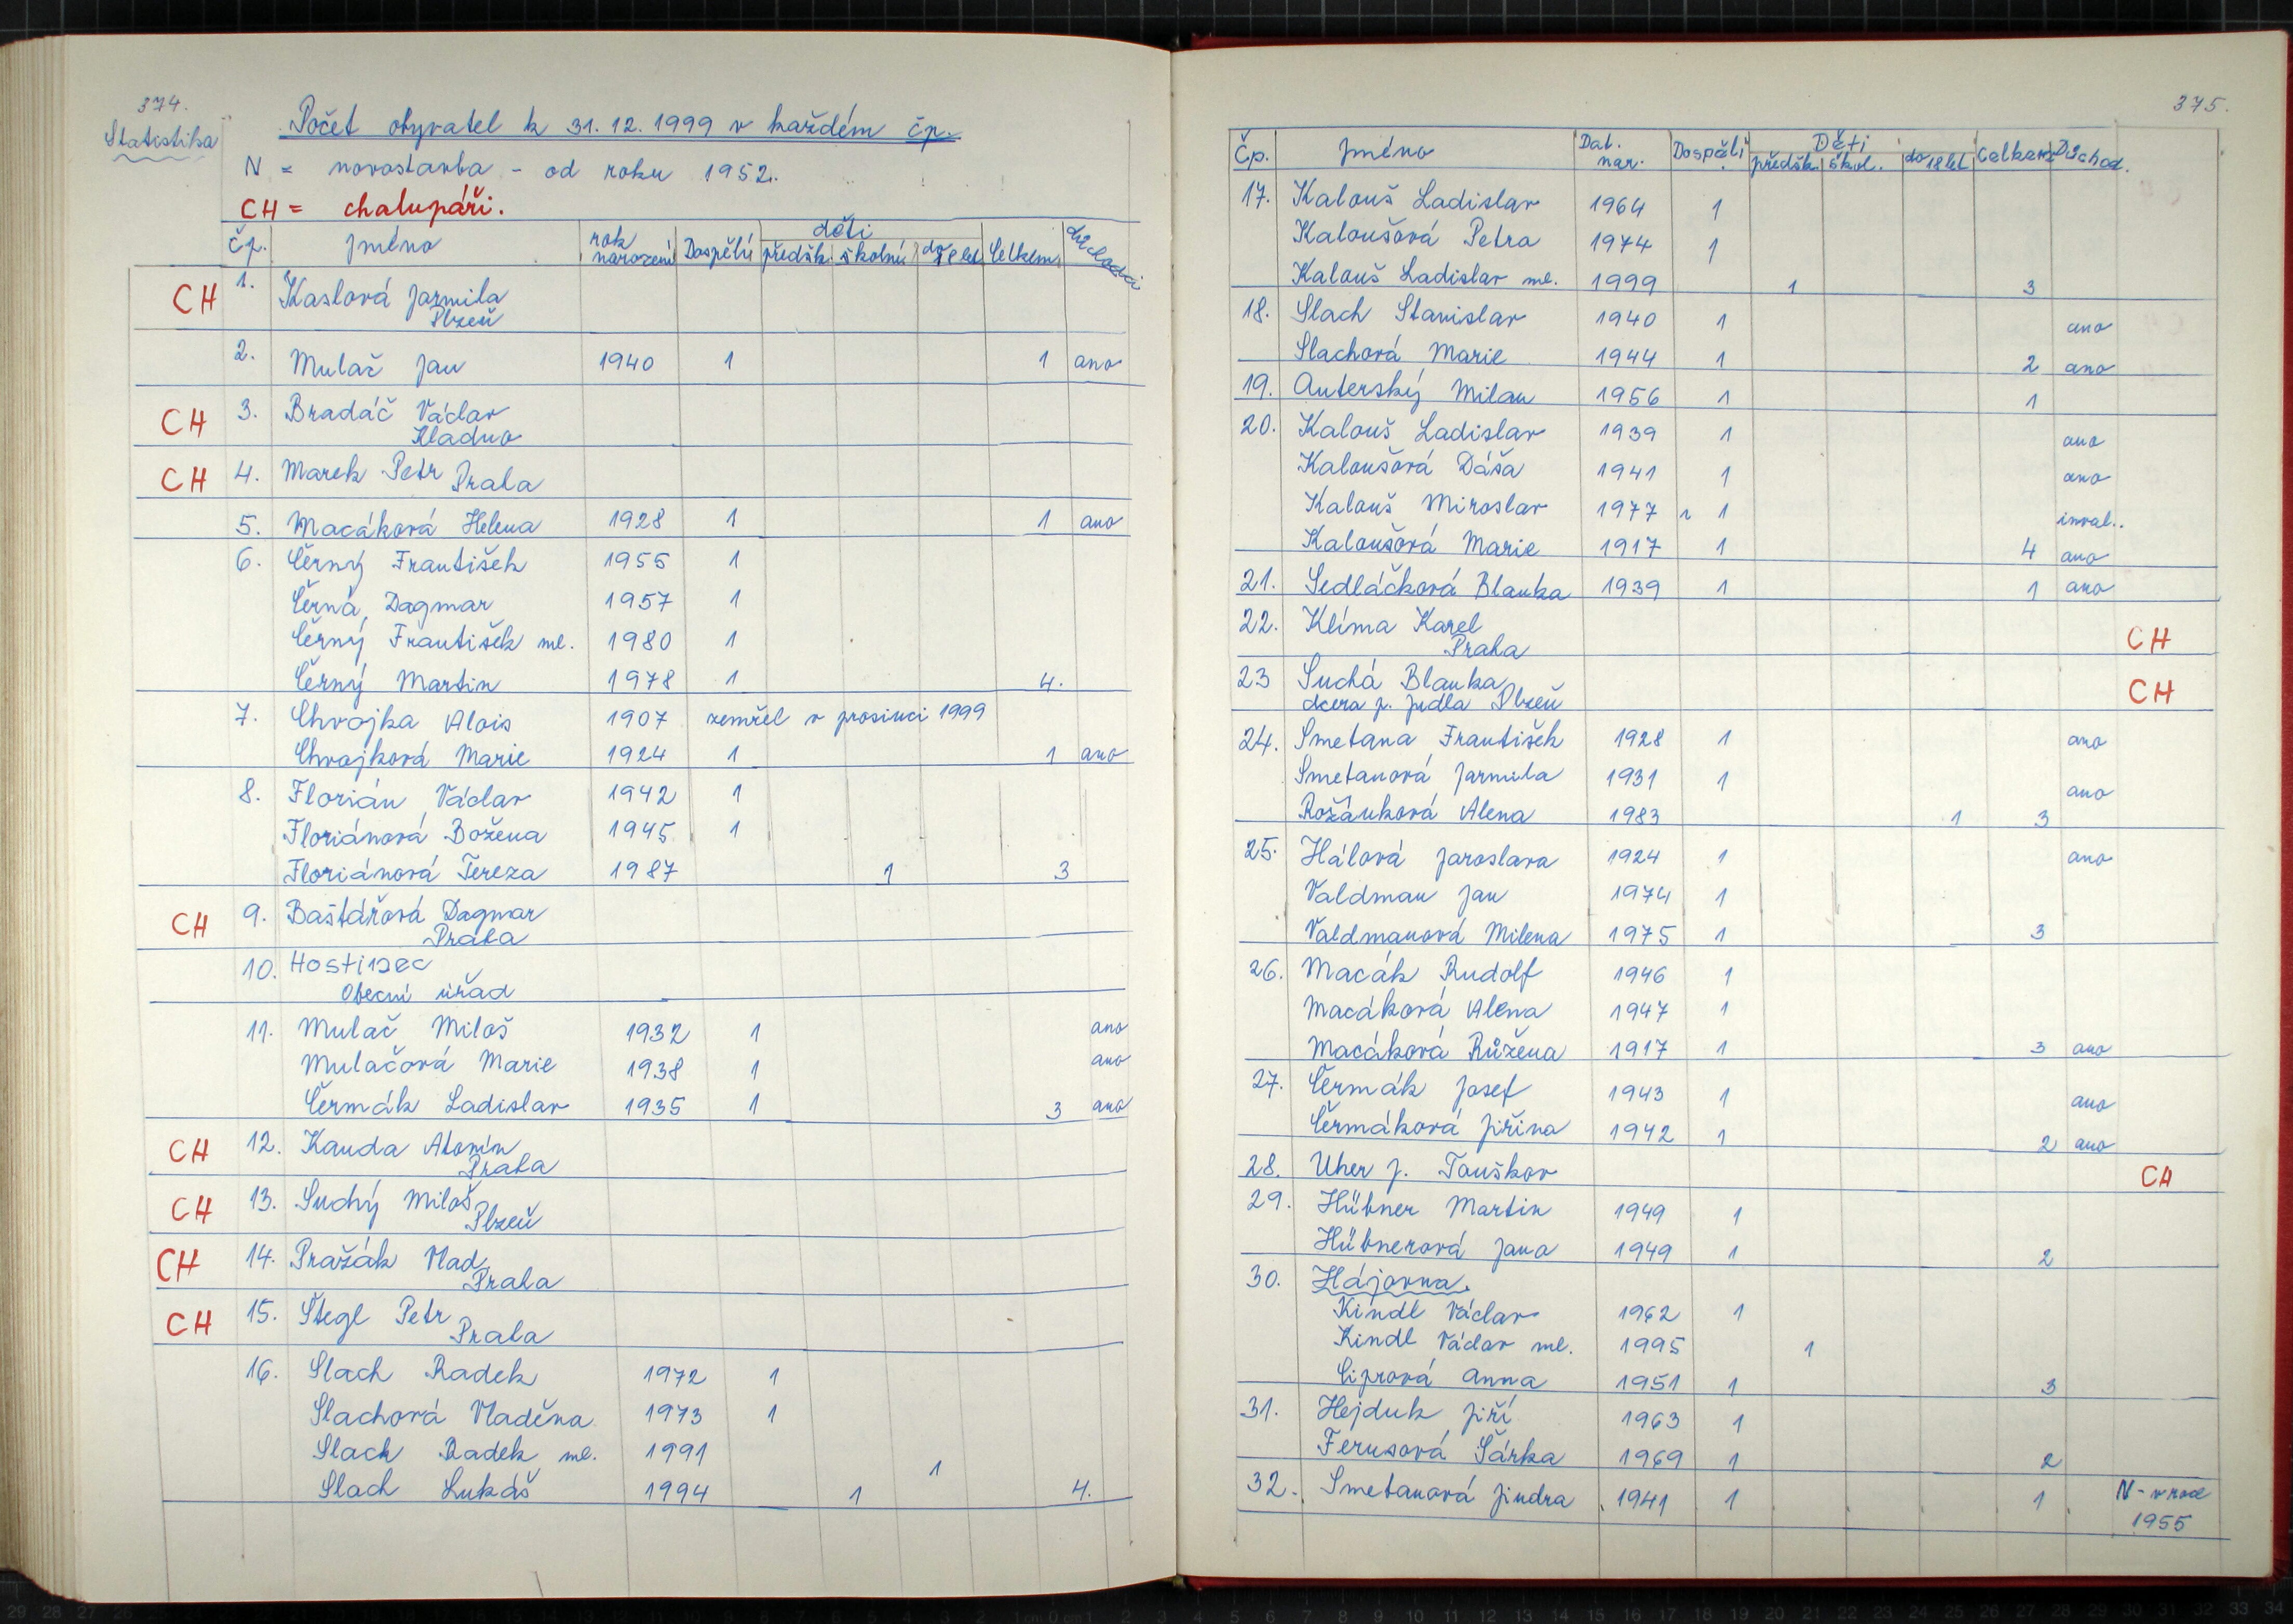 374.
Statistika
Počet obyvatel k 31.12.1999 v každém čp.
N = novostavba - od roku 1952.
CH = chalupáři.
čp. jméno rok narození Dospělí děti předšk. školní do 18 let Celkem důchodci
CH 1. Kaslová Jarmila
Plzeň
2. Mulač Jan 1940 1 1 ano
CH 3. Bradáč Václav
Kladno
CH 4. Marek Petr Praha
5. Macáková Helena 1928 1 1 ano
6. Černý František 1955 1
Černá Dagmar 1957 1
Černý František ml. 1980 1
Černý Martin 1978 1 4.
7. Chvojka Alois 1907 zemřel v prosinci 1999
Chvojková Marie 1924 1 1 ano
8. Florián Václav 1942 1
Floriánová Božena 1945 1
Floriánová Tereza 1987 1 3
CH 9. Baštářová Dagmar
Praha
10. Hostinec
Obecní úřad
11. Mulač Miloš 1932 1 ano
Mulačová Marie 1938 1 ano
Čermák Ladislav 1935 1 3 ano
CH 12. Kanda Atonín
Praha
CH 13. Suchý Miloš
Plzeň
CH 14. Pražák Vlad.
Praha
CH 15. Štegl Petr
Praha
16. Slach Radek 1972 1
Slachová Vladěna 1973 1
Slach Radek ml. 1991 1
Slach Lukáš 1994 1 4.
375.
Čp. Jméno Dat. nar. Dospělí Děti předšk. škol. do 18 let Celkem Důchod.
17. Kalouš Ladislav 1964 1
Kaloušová Petra 1974 1
Kalouš Ladislav ml. 1999 1 3
18. Slach Stanislav 1940 1 ano
Slachová Marie 1944 1 2 ano
19. Auterský Milan 1956 1 1
20. Kalouš Ladislav 1939 1 ano
Kaloušová Dáša 1941 1 ano
Kalouš Miroslav 1977 1 inval..
Kaloušová Marie 1917 1 4 ano
21. Sedláčková Blanka 1939 1 1 ano
22. Klíma Karel
Praha CH
23 Suchá Blanka
dcera p. Judla Plzeň CH
24. Smetana František 1928 1 ano
Smetanová Jarmila 1931 1 ano
Rožánková Alena 1983 1 3
25. Hálová Jaroslava 1924 1 ano
Valdman Jan 1974 1
Valdmanová Milena 1975 1 3
26. Macák Rudolf 1946 1
Macáková Alena 1947 1
Macáková Růžena 1917 1 3 ano
27. Čermák Josef 1943 1 ano
Čermáková Jiřina 1942 1 2 ano
28. Uher J. Touškov CH
29. Hübner Martin 1949 1
Hübnerová Jana 1949 1 2
30. Hájovna.
Kindl Václav 1962 1
Kindl Václav ml. 1995 1
Ciprová Anna 1951 1 3
31. Hejduk Jiří 1963 1
Ferusová Šárka 1969 1 2
32. Smetanová Jindra 1941 1 1 N - v roce
1955